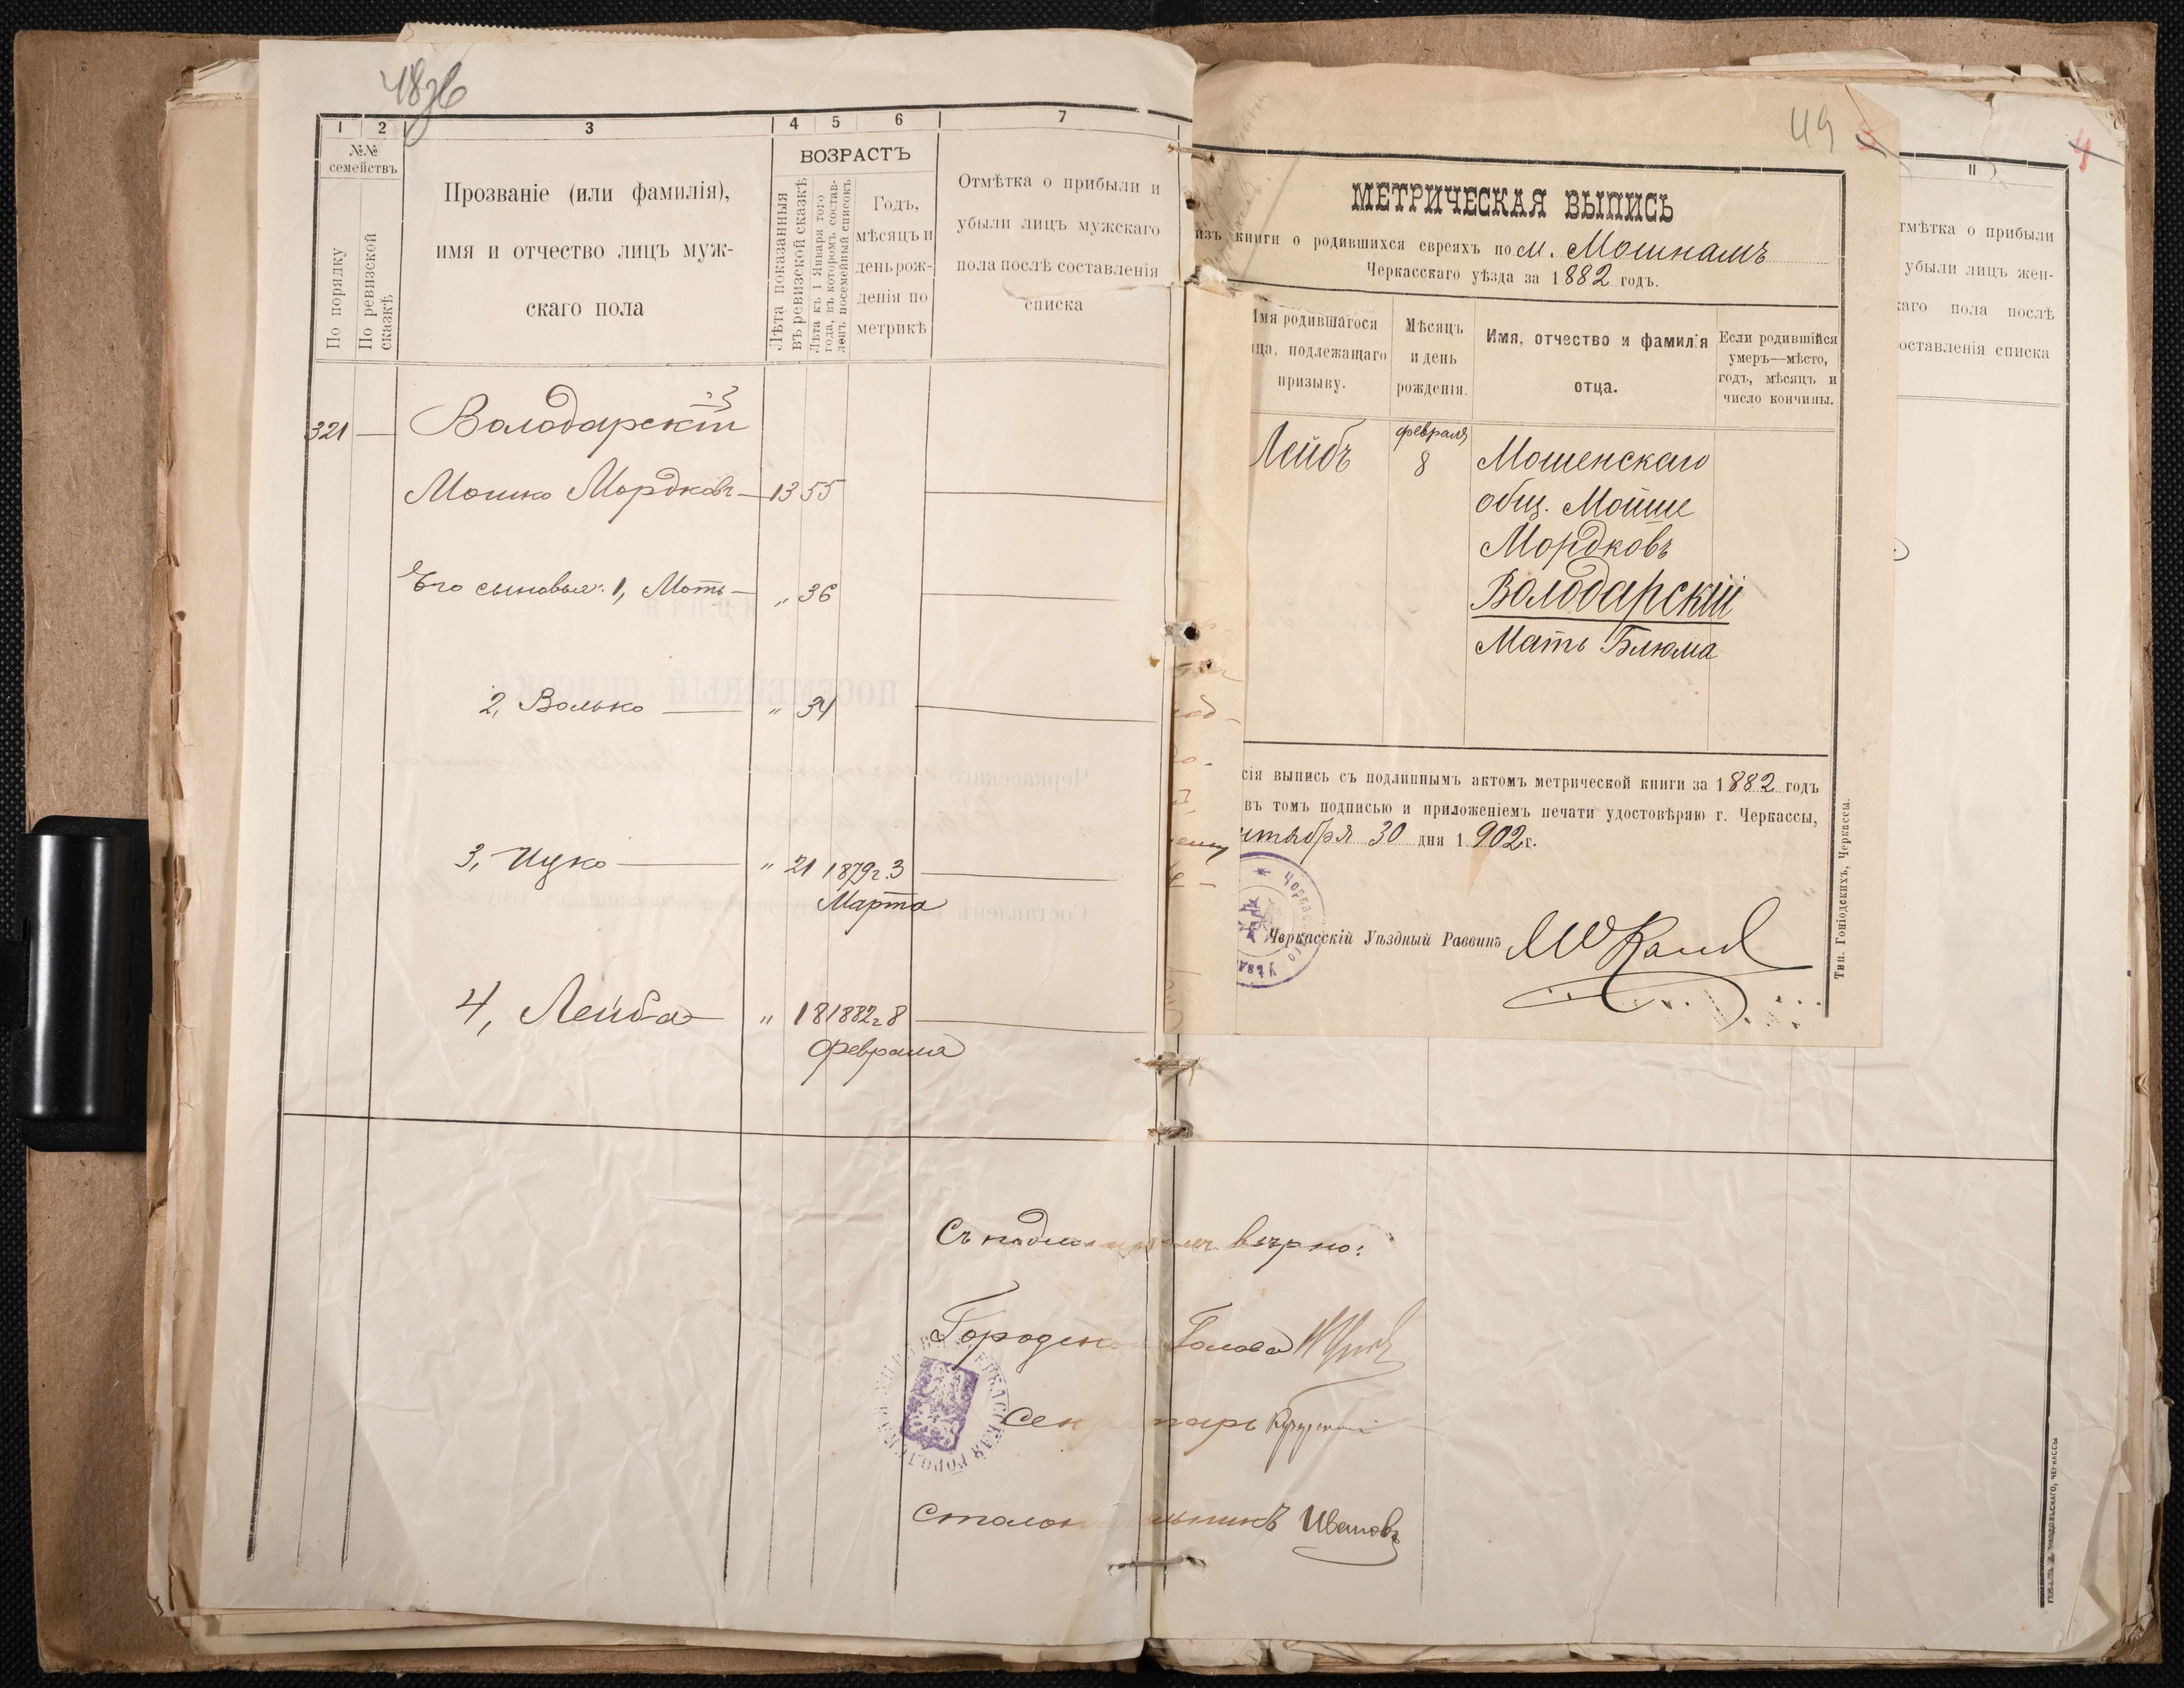 48 об
1
2
3
4
5
6
7
№№
семействъ
По порядку
По ревизской
сказкѣ
Прозваніе (или фамилія),
имя и отчество лицъ муж-
скаго пола
ВОЗРАСТЪ
Лѣта показанныя
въ ревизской сказкѣ
Лѣта къ 1 Января того
года, въ которомъ состав-
ленъ посемейный списокъ
Годъ,
мѣсяцъ и
день рож-
денія по
метрикѣ
Отмѣтка о прибыли и
убыли лицъ мужскаго
пола послѣ составленія
списка
321 — Володарскій
Мошко Мордковъ — 13 55
Его сыновья: 1, Моть — „ 36
2, Волько — „ 34
3, Ицко — „ 21 1879 г. 3
Марта
4, Лейба — „ 18 1882 г. 8
Февраля
Съ подлиннымъ вѣрно:
Городской Голова
Секретарь
Столоначальникъ Ивановъ
49
МЕТРИЧЕСКАЯ ВЫПИСЬ
изъ книги о родившихся евреяхъ по м. Мошнамъ
Черкасскаго уѣзда за 1882 годъ.
Имя родившагося
ица, подлежащаго
призыву.
Мѣсяцъ
и день
рожденія.
Имя, отчество и фамилія
отца.
Если родившійся
умеръ—мѣсто,
годъ, мѣсяцъ и
число кончины.
Лейбъ
февраля
8
Мошенскаго
общ. Мойше
Мордковъ
Володарскій
Мать Блюма
сія выпись съ подлиннымъ актомъ метрической книги за 1882 годъ
въ томъ подписью и приложеніемъ печати удостовѣряю г. Черкассы,
нтября 30 дня 1902 г.
Черкасскій Уѣздный Раввинъ
Тип. Гоніодскихъ, Черкассы.
11
тмѣтка о прибыли
убыли лицъ жен-
каго пола послѣ
оставленія списка